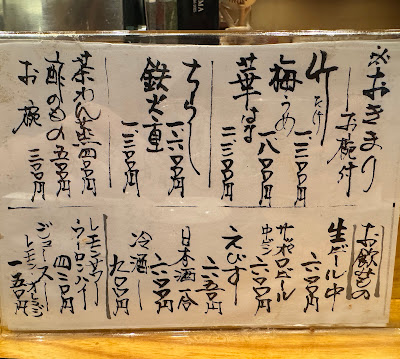 ※おきまり
お椀付
竹 たけ 一、三〇〇円
梅 うめ 一、八〇〇円
華 はな 二、三〇〇円
ちらし 一、六〇〇円
鉄火重 一、三〇〇円
茶わん蒸 四〇〇円
酢のもの 五〇〇円
お椀 三〇〇円
お飲もの
生ビール中 六〇〇円
サッポロビール 中ビン 六〇〇円
えびす 六五〇円
日本酒一合 六〇〇円
冷酒 九〇〇円
レモンサワー
ウーロンハイ 四三〇円
ジュース
レモン オレンジ 一五〇円